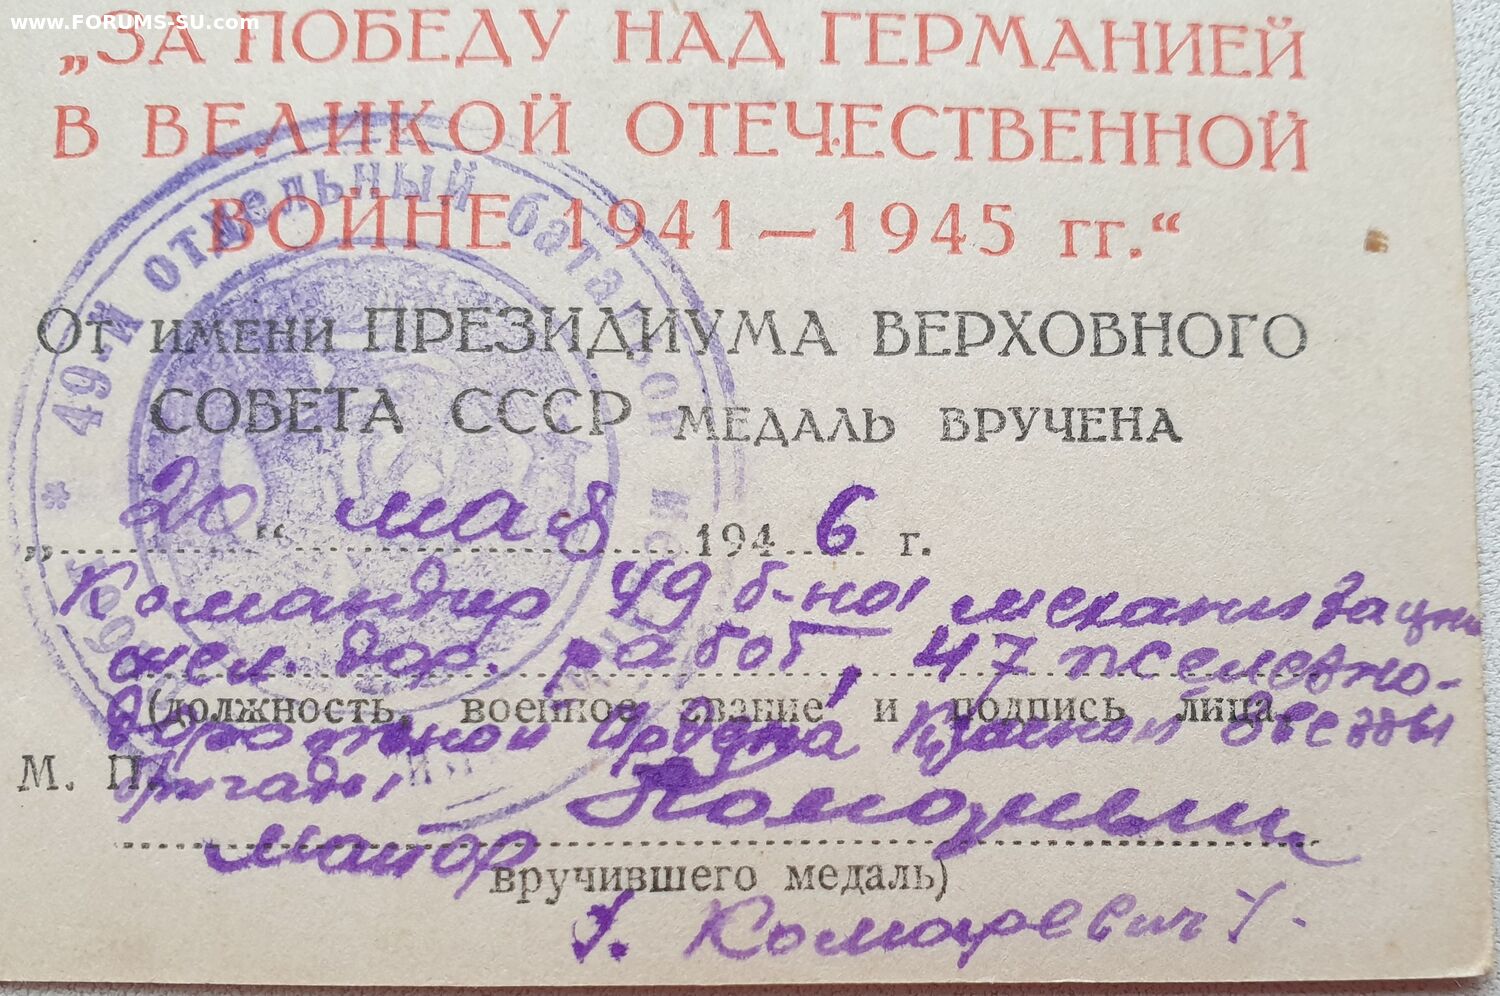 www.FORUMS-SU.com
„ЗА ПОБЕДУ НАД ГЕРМАНИЕЙ
В ВЕЛИКОЙ ОТЕЧЕСТВЕННОЙ
ВОЙНЕ 1941—1945 гг.“
* 49-й отдельный батальон
От имени ПРЕЗИДИУМА ВЕРХОВНОГО
СОВЕТА СССР МЕДАЛЬ ВРУЧЕНА
„20“ мая 1946 г.
Командир 49 б-на механизации
жел. дор. работ, 47 железно-
(должность, военное звание и подпись лица,
дорожной ордена Красной Звезды
М. П. бригады
майор
вручившего медаль)